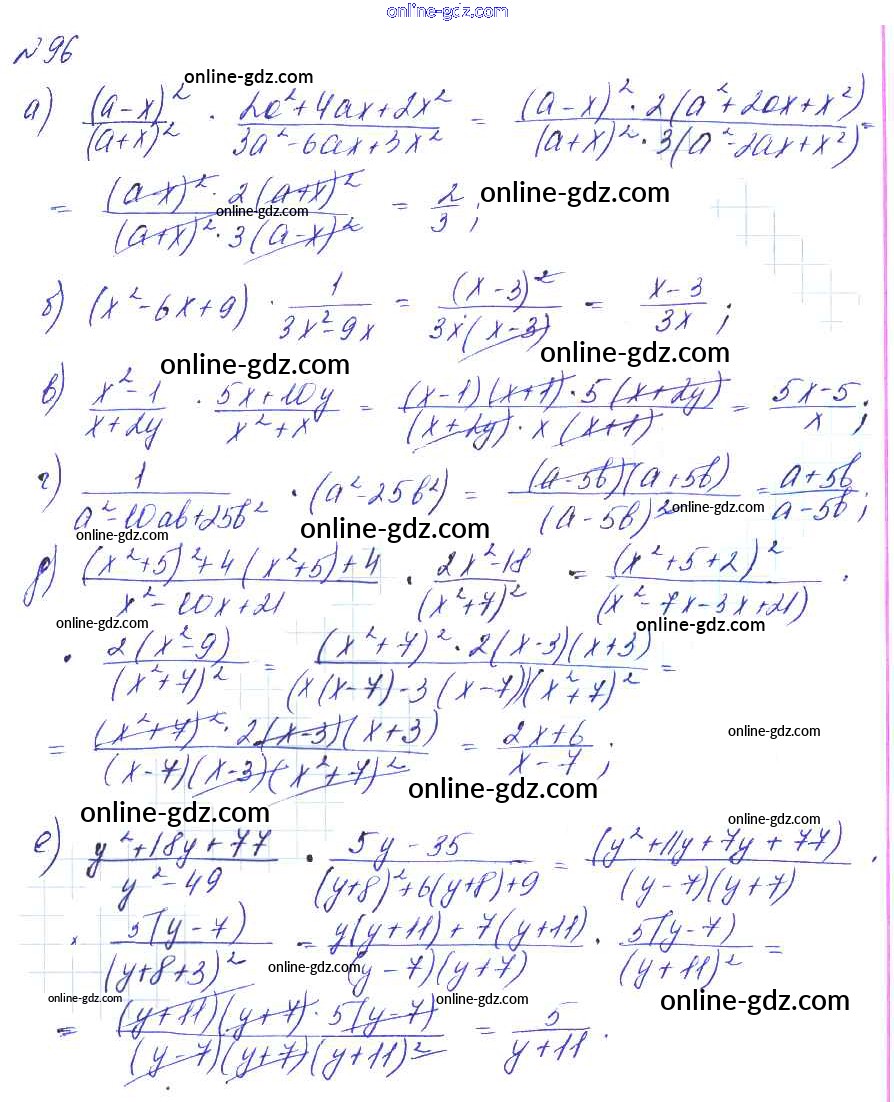 online-gdz.com
№96
online-gdz.com
а) (a-x)²/(a+x)² · (2a²+4ax+2x²)/(3a²-6ax+3x²) = ((a-x)²·2(a²+2ax+x²))/((a+x)²·3(a²-2ax+x²)) =
= ((a-x)²·2(a+x)²)/((a+x)²·3(a-x)²) = 2/3;
online-gdz.com
online-gdz.com
б) (x²-6x+9) · 1/(3x²-9x) = (x-3)²/(3x(x-3)) = (x-3)/(3x);
online-gdz.com
online-gdz.com
в) (x²-1)/(x+2y) · (5x+10y)/(x²+x) = ((x-1)(x+1)·5(x+2y))/((x+2y)·x(x+1)) = (5x-5)/x;
г) 1/(a²-10ab+25b²) · (a²-25b²) = ((a-5b)(a+5b))/(a-5b)² = (a+5b)/(a-5b);
online-gdz.com
online-gdz.com
online-gdz.com
д) ((x²+5)²+4(x²+5)+4)/(x²-10x+21) · (2x²-18)/(x²+7)² = (x²+5+2)²/(x²-7x-3x+21) ·
online-gdz.com
online-gdz.com
· 2(x²-9)/(x²+7)² = ((x²+7)²·2(x-3)(x+3))/((x(x-7)-3(x-7))(x²+7)²) =
= ((x²+7)²·2(x-3)(x+3))/((x-7)(x-3)(x²+7)²) = (2x+6)/(x-7);
online-gdz.com
online-gdz.com
online-gdz.com
online-gdz.com
е) (y²+18y+77)/(y²-49) · (5y-35)/((y+8)²+6(y+8)+9) = (y²+11y+7y+77)/((y-7)(y+7)) ·
× 5(y-7)/(y+8+3)² = (y(y+11)+7(y+11))/((y-7)(y+7)) · 5(y-7)/(y+11)² =
online-gdz.com
online-gdz.com
online-gdz.com
online-gdz.com
= ((y+11)(y+7)·5(y-7))/((y-7)(y+7)(y+11)²) = 5/(y+11).